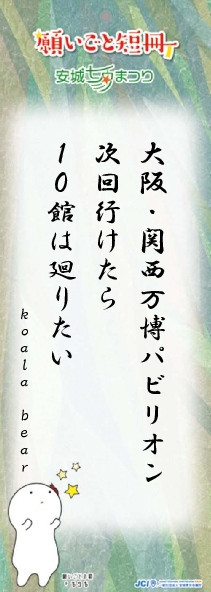 願いごと短冊
安城七夕まつり
大阪・関西万博パビリオン
次回行けたら
10館は廻りたい
koala bear
JCI